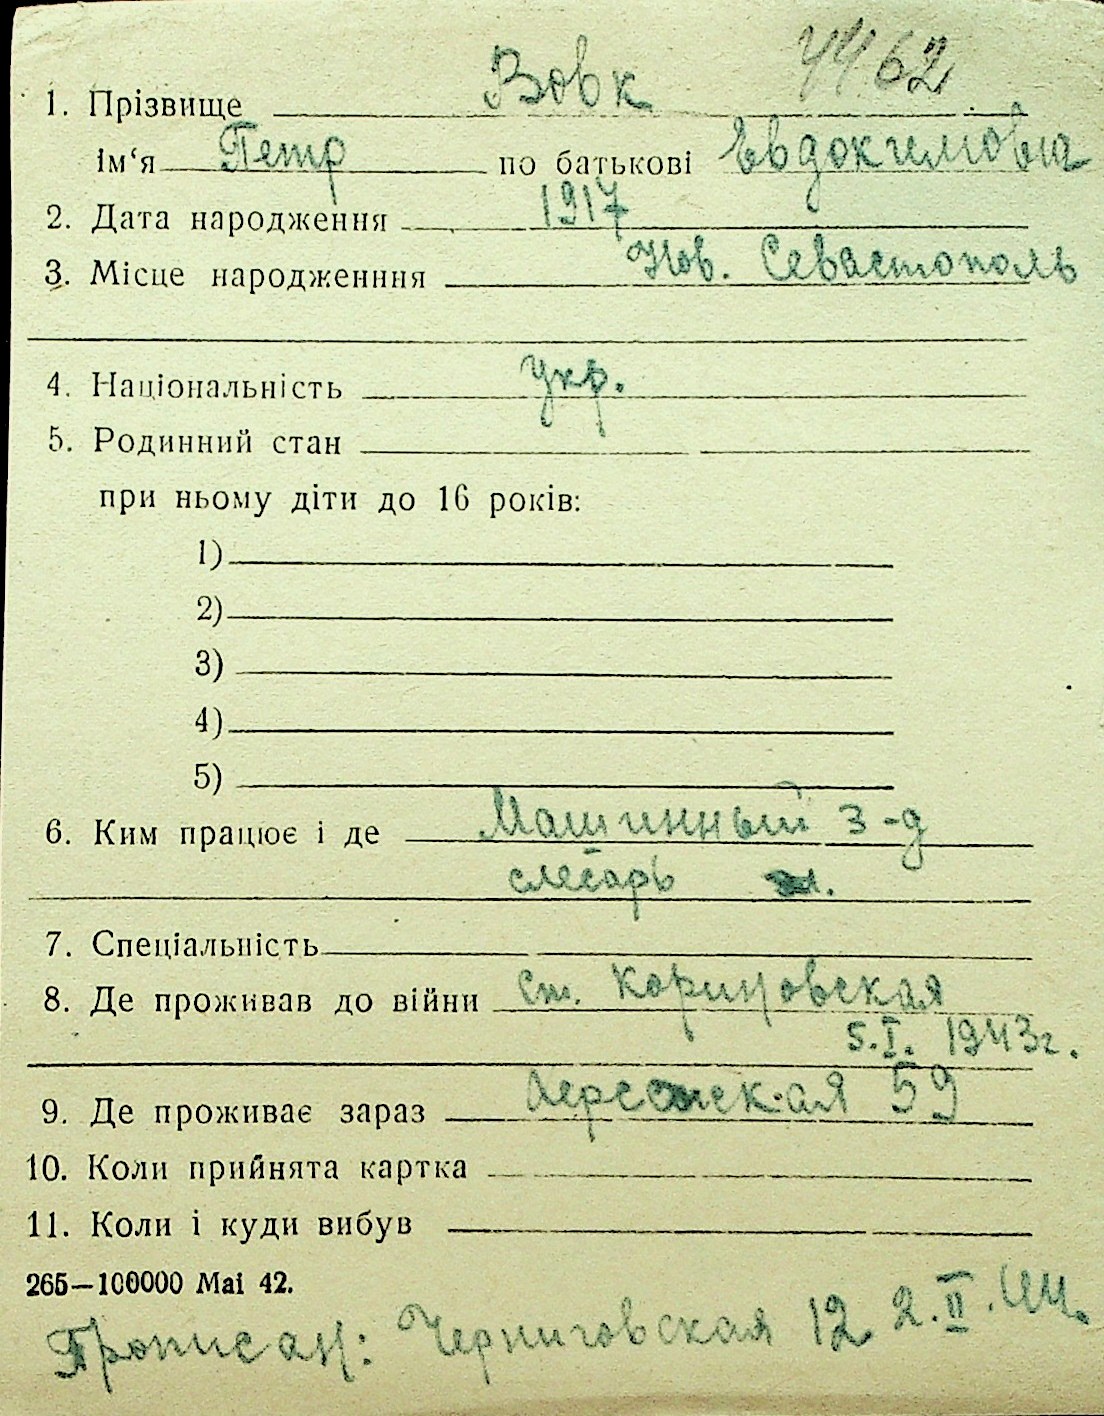 4462
1. Прізвище Вовк
ім‘я Петр по батькові Евдокимович
2. Дата народження 1917
3. Місце народженння Нов. Севастополь
4. Національність укр.
5. Родинний стан
при ньому діти до 16 років:
1)
2)
3)
4)
5)
6. Ким працює і де Машинный з-д
слесарь
7. Спеціальність
8. Де проживав до війни ст. Кориновская
5.I. 1943г.
9. Де проживає зараз Херсонская 59
10. Коли прийнята картка
11. Коли і куди вибув
265—100000 Mai 42.
Прописан: Черниговская 12 2.II.44.